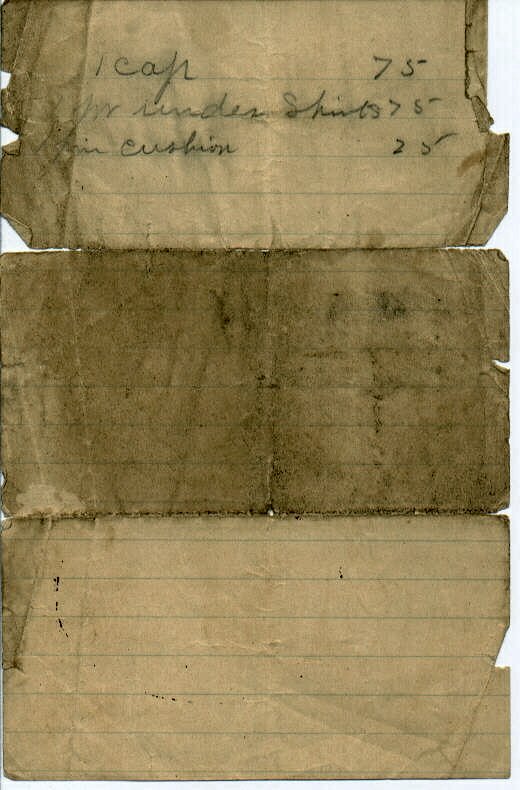 1 cap 75
pr under Shirts 75
pin cushion 25